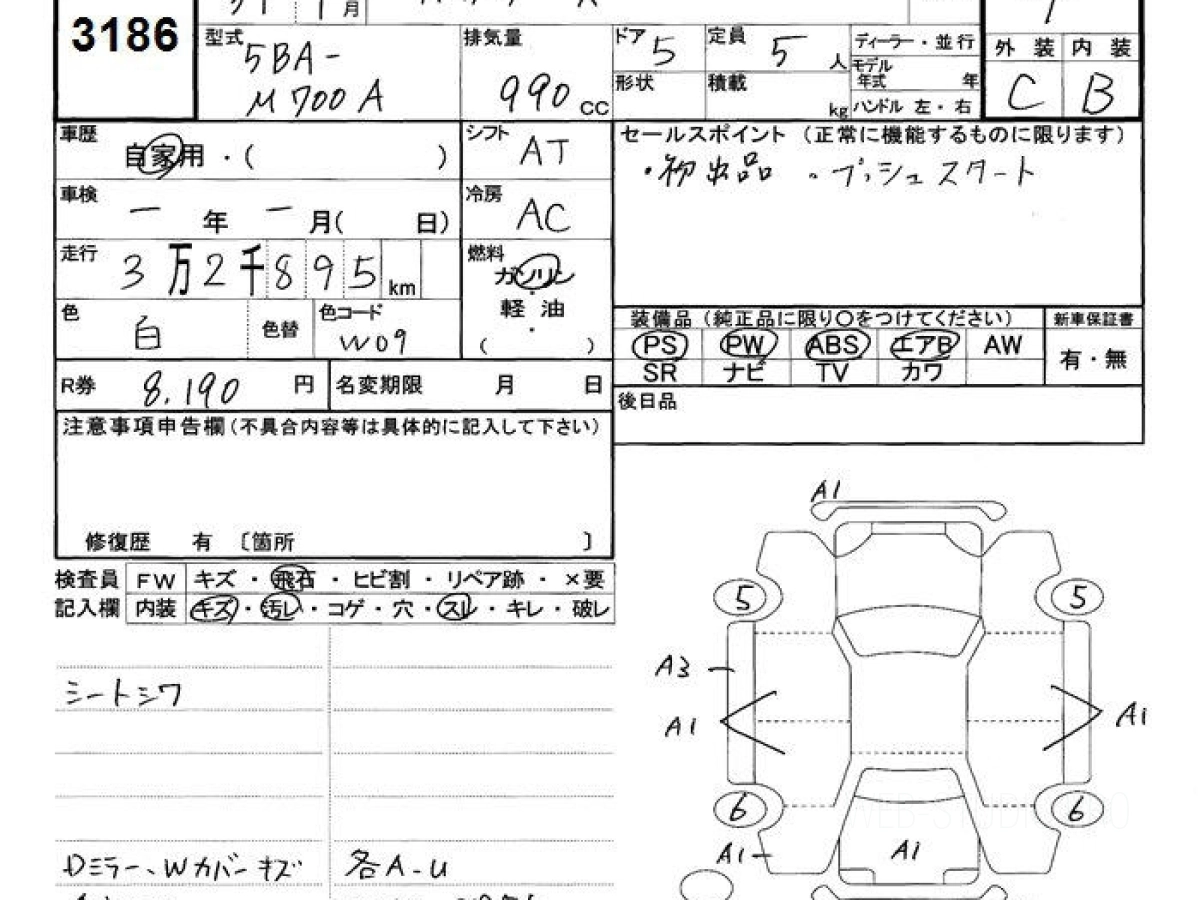 3186
月
型式 5BA-
M700A
排気量
990 cc
ドア 5
定員 5 人
形状
積載 kg
ディーラー・並行
モデル
年式 年
ハンドル 左・右
外装 内装
C B
車歴
自家用・( )
シフト
AT
車検
一 年 一 月( 日)
冷房
AC
走行
3万2千895km
燃料
ガソリン
・
軽油
・
( )
色
白
色替
色コード
W09
R券 8,190 円
名変期限 月 日
セールスポイント (正常に機能するものに限ります)
・初出品 ・プッシュスタート
装備品 (純正品に限り〇をつけてください)
新車保証書
PS PW ABS エアB AW
有・無
SR ナビ TV カワ
後日品
注意事項申告欄(不具合内容等は具体的に記入して下さい)
修復歴 有 〔箇所 〕
検査員
記入欄
FW キズ・飛石・ヒビ割・リペア跡・×要
内装 キズ・汚レ・コゲ・穴・スレ・キレ・破レ
シートシワ
Dミラー、Wカバーキズ
各A-U
A1
5
5
A3
A1
A1
6
6
A1
A1